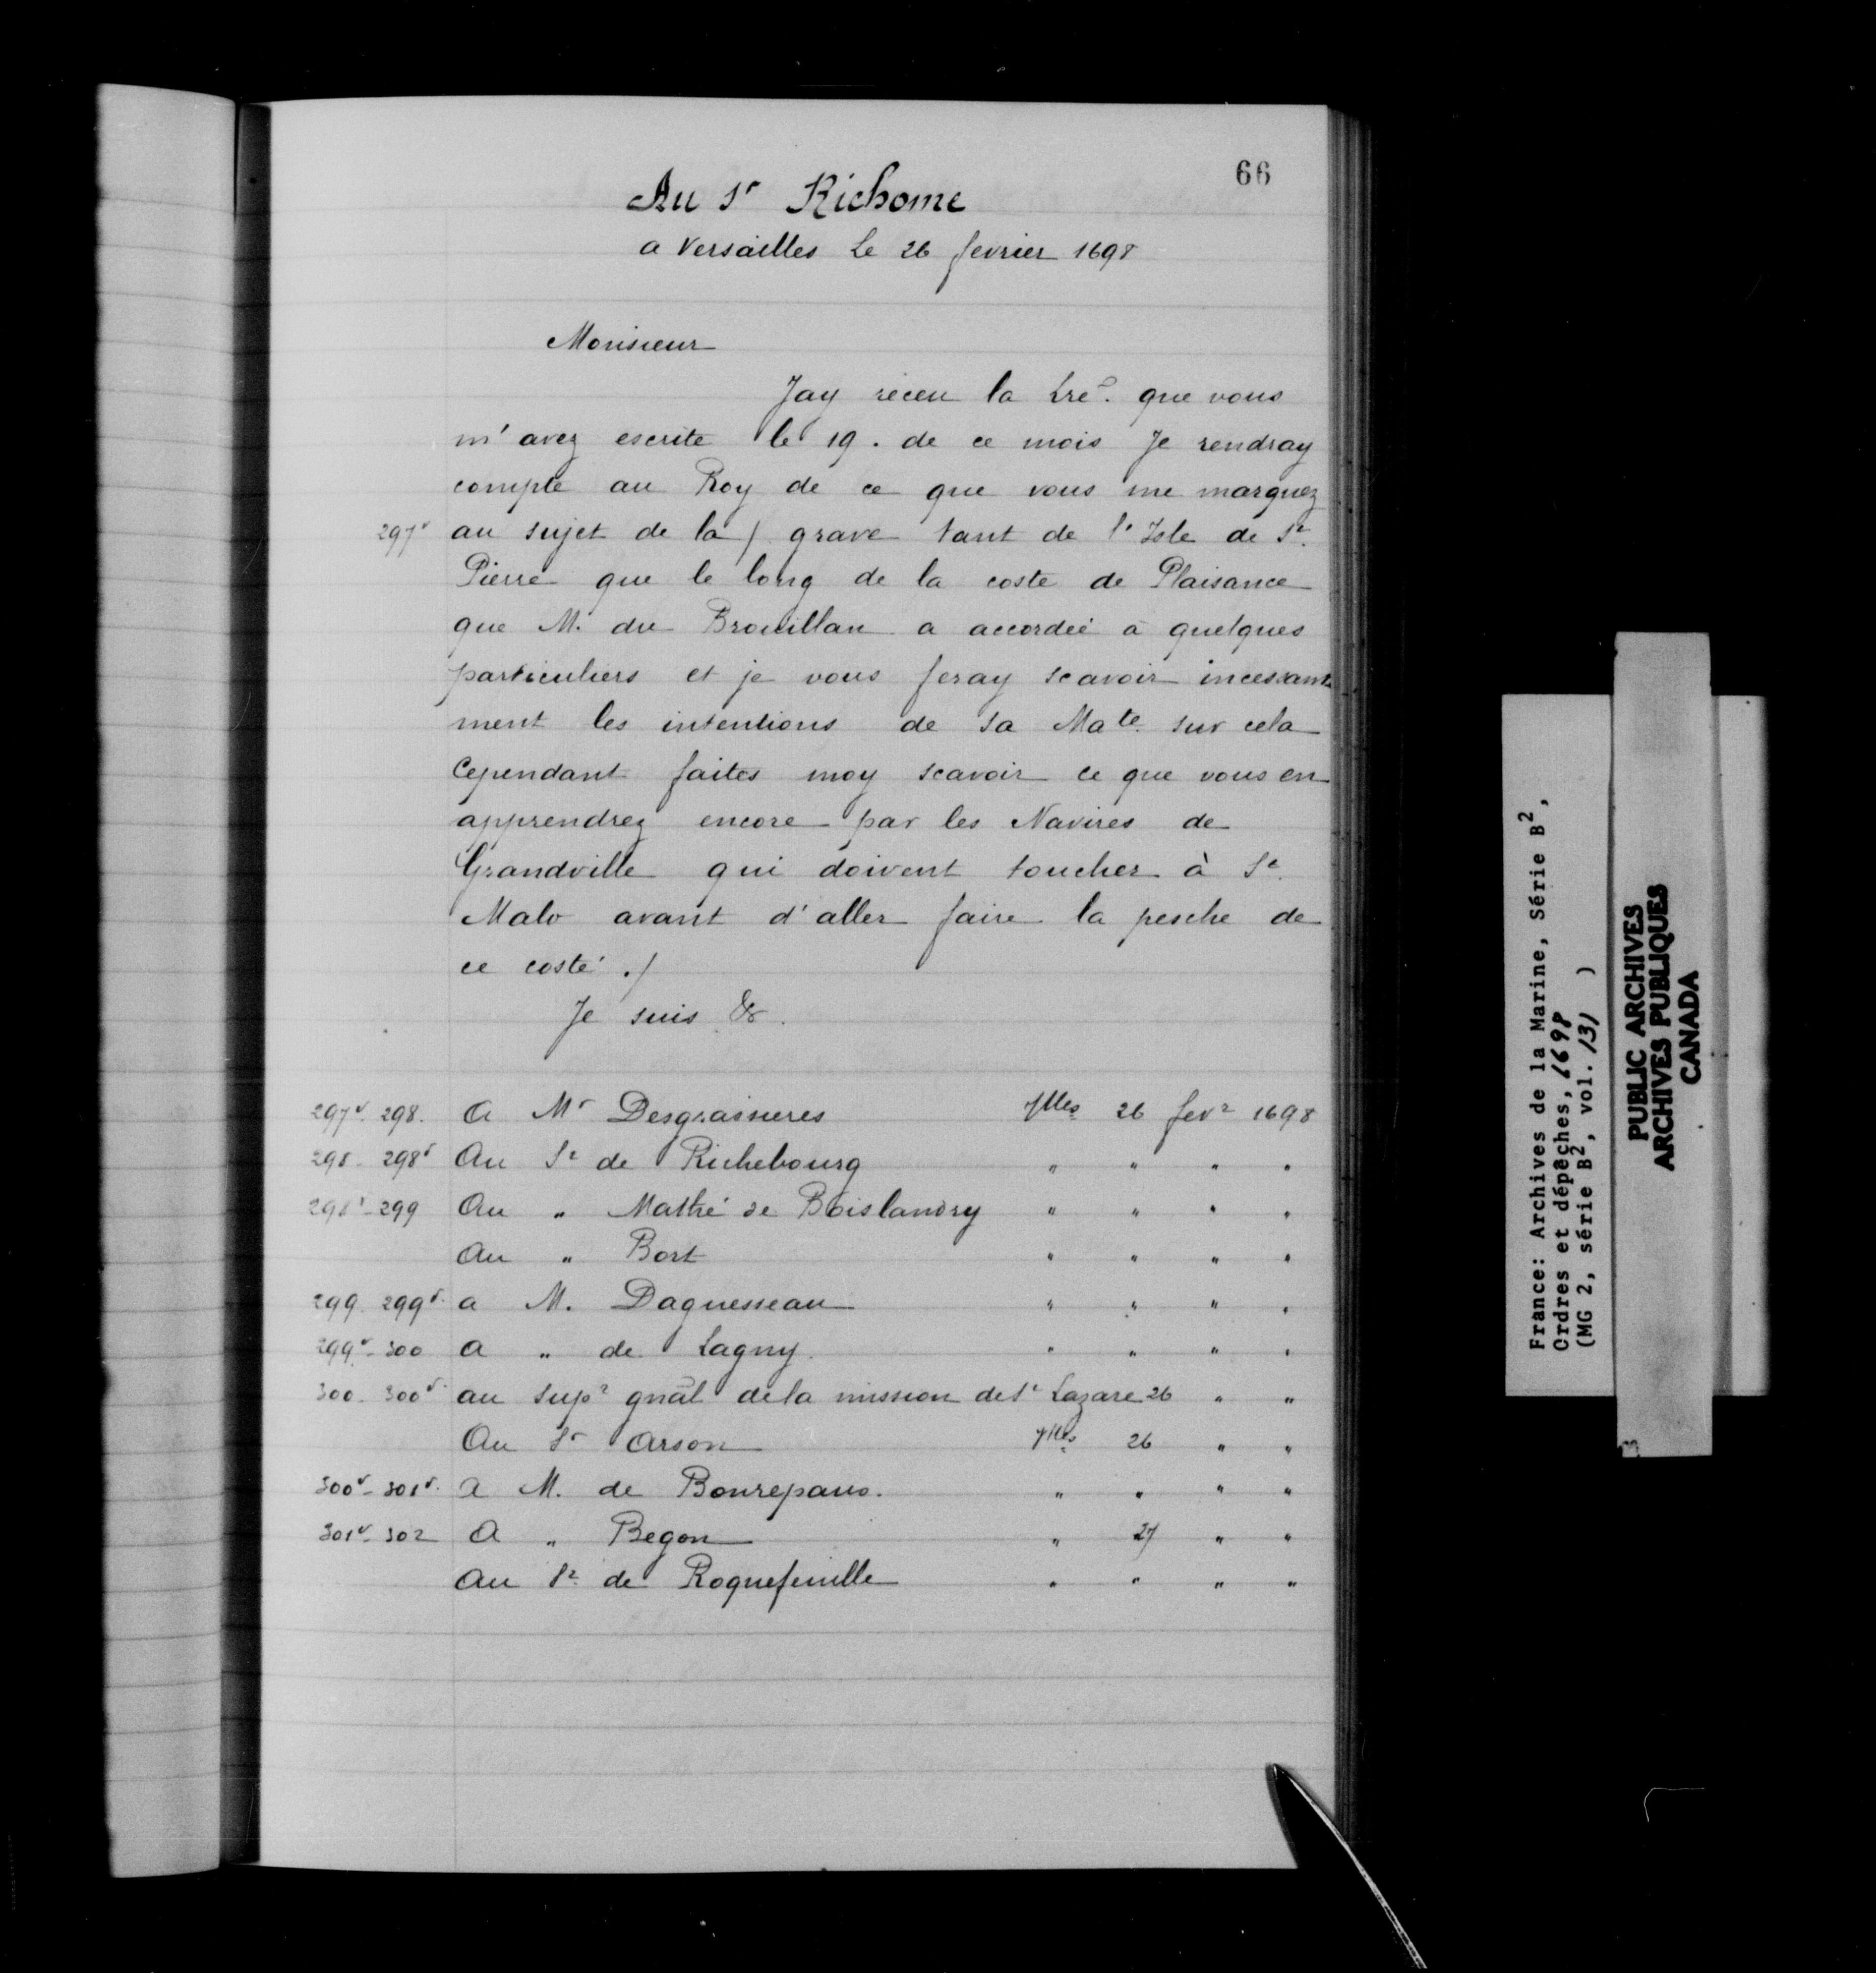 66
Au Sr Richome
a Versailles Le 26 fevrier 1698
Monsieur
Jay receu la Lre. que vous
m'avez escrite le 19. de ce mois Je rendray
compte au Roy de ce que vous me marquez
297v au sujet de la / grave tant de l'Isle de St.
Pierre que le long de la coste de Plaisance
que M. du Brouillan a accordée à quelques
particuliers et je vous feray scavoir incessam
ment les intentions de Sa Mate. sur cela
Cependant faites moy scavoir ce que vous en
apprendrez encore par les Navires de
Grandville qui doivent toucher à St.
Malo avant d'aller faire la pesche de
ce costé ./
Je suis &.
297v. 298. A Mr Desgrassieres Vlles 26 fevr 1698
298 - 298v Au Sr de Richebourg " " " "
298v - 299 Au " Mathé de Boislandry " " " "
Au " Bort " " " "
299. 299v. a M. Daguesseau " " " "
299v - 300 a " de Lagny. " " " "
300 - 300v. au Supr gnãl de la mission de St Lazare 26 " "
Au Sr Arson Vlles 26 " "
300v - 301v. a M. de Bonrepaus. " " " "
301v - 302 A " Begon " 27 " "
au Sr. de Roquefeuille " " " "
France: Archives de la Marine, Série B2,
Ordres et dépêches, 1698
(MG 2, série B2, vol. 131 )
PUBLIC ARCHIVES
ARCHIVES PUBLIQUES
CANADA